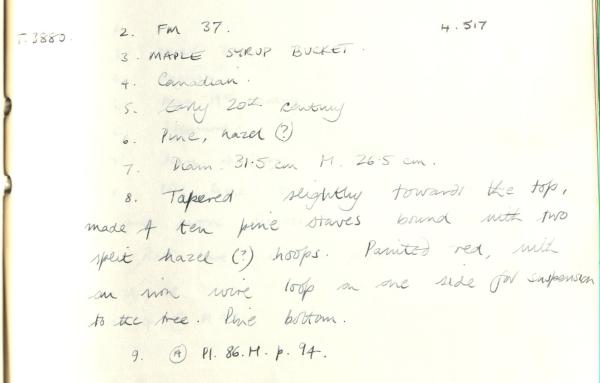 T.3880. 2. FM 37. H.517
3. MAPLE SYRUP BUCKET.
4. Canadian.
5. Early 20th century
6. Pine, hazel (?)
7. Diam. 31.5 cm H. 26.5 cm.
8. Tapered slightly towards the top,
made of ten pine staves bound with two
split hazel (?) hoops. Painted red, with
an iron wire loop on one side for suspension
to the tree. Pine bottom.
9. (A) Pl. 86.H. p. 94.